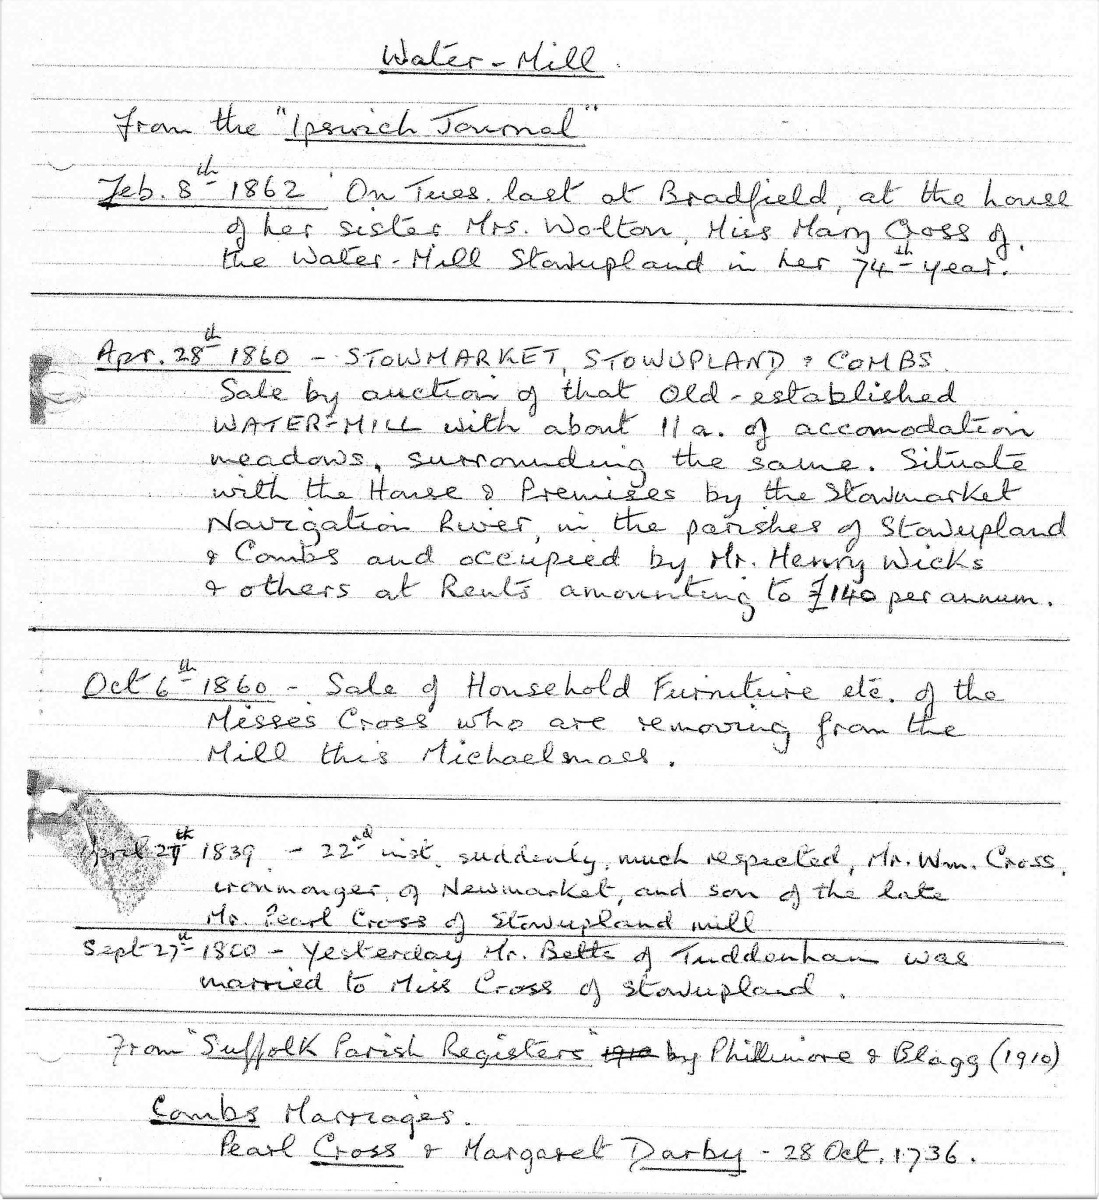 Water-Mill.
From the "Ipswich Journal"
Feb. 8th 1862 On Tues. last at Bradfield, at the house
of her sister Mrs. Wolton, Miss Mary Cross of
the Water-Mill Stowupland in her 74th year.
Apr. 28th 1860 - STOWMARKET, STOWUPLAND & COMBS.
Sale by auction of that old-established
WATER-MILL with about 11a. of accomodation
meadows, surrounding the same. Situate
with the House & Premises by the Stowmarket
Navigation River, in the parishes of Stowupland
& Combs and occupied by Mr. Henry Wicks
& others at Rents amounting to £140 per annum.
Oct 6th 1860 - Sale of Household Furniture etc. of the
Misses Cross who are removing from the
Mill this Michaelmass.
April 27th 1839 - 22nd inst. suddenly, much respected, Mr. Wm. Cross,
ironmonger, of Newmarket, and son of the late
Mr. Pearl Cross of Stowupland mill
Sept 27th 1800 - Yesterday Mr. Betts of Tuddenham was
married to Miss Cross of Stowupland.
From "Suffolk Parish Registers" 1910 by Phillimore & Blagg (1910)
Combs Marriages.
Pearl Cross & Margaret Darby - 28 Oct. 1736.